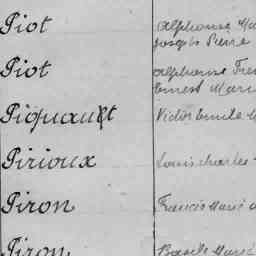 Piot Alphonse Ma
Joseph Pierre
Piot Alphonse
Ernest Mari
Piquault Victor Emile
Pirioux Louis Charles
Piron Francis Marie
Piron Basile Marie